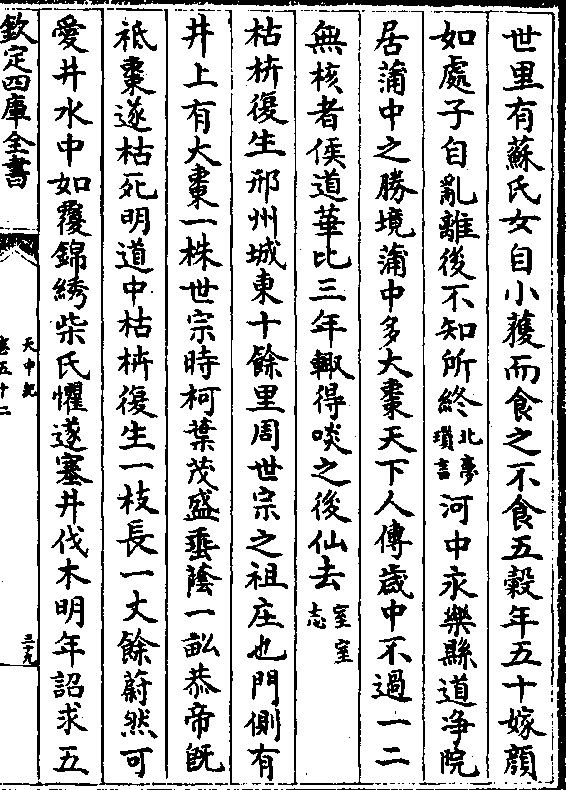 世里有蘇氏女自小獲而食之不食五穀年五十嫁顔
如處子自亂離後不知所終北夢瑣言河中永樂縣道净院
居蒲中之勝境蒲中多大棗天下人傳歲中不過一二
無核者侯道華比三年輙得啖之後仙去宣室志
枯枿復生邢州城東十餘里周世宗之祖庄也門側有
井上有大棗一株世宗時柯葉茂盛垂蔭一畝恭帝旣
禠棗遂枯死明道中枯枿復生一枝長一丈餘蔚然可
愛井水中如覆錦綉柴氏懼遂塞井伐木明年詔求五
欽定四庫全書
天中記
卷五十二
三十九